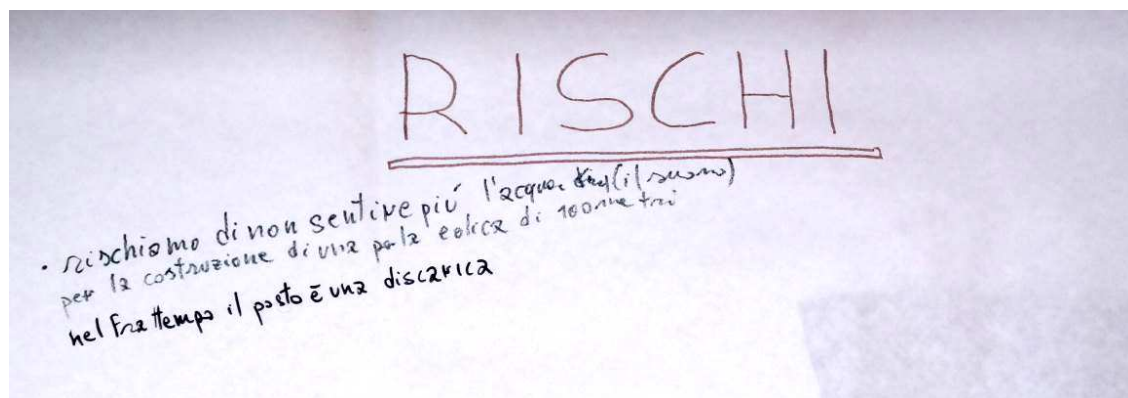 RISCHI
• rischiamo di non sentire più l'acqua (il suono)
per la costruzione di una pala eolica di 100 metri
nel frattempo il posto è una discarica